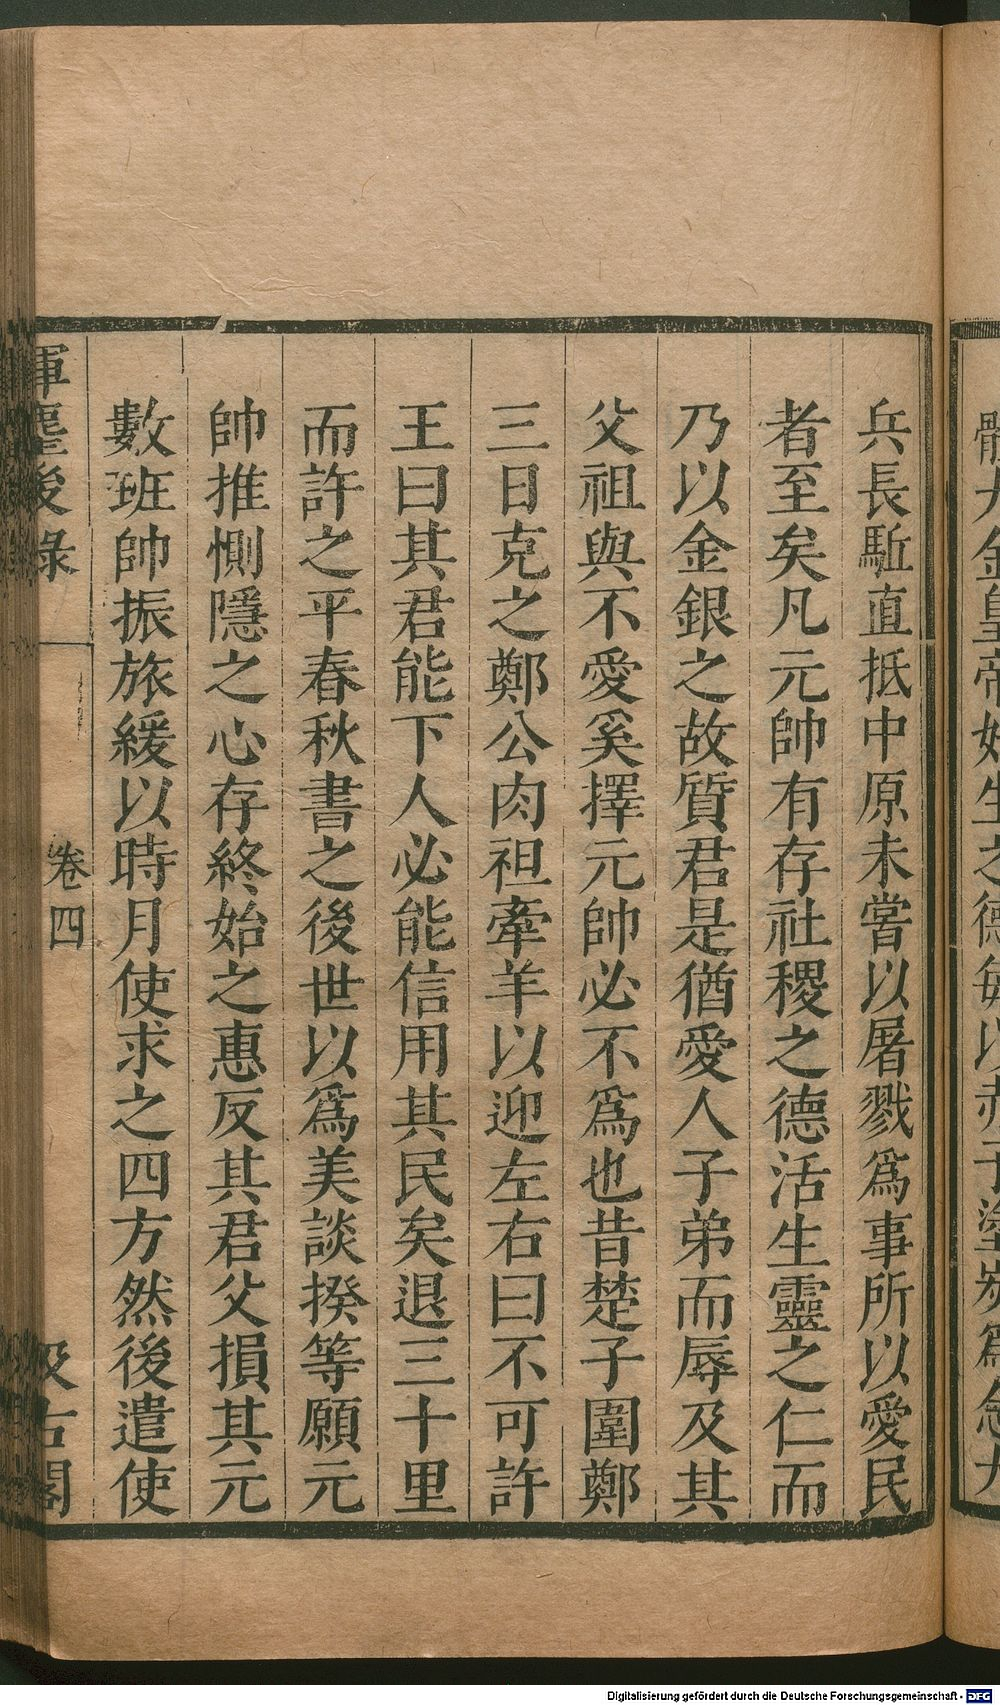 兵長駈直抵中原未嘗以屠戮爲事所以愛民
者至矣凡元帥有存社稷之德活生靈之仁而
乃以金銀之故質君是猶愛人子弟而辱及其
父祖與不愛奚擇元帥必不爲也昔楚子圍鄭
三日克之鄭公肉袒牽羊以迎左右曰不可許
王曰其君能下人必能信用其民矣退三十里
而許之平春秋書之後世以爲美談揆等願元
帥推惻隱之心存終始之惠反其君父損其元
數班帥振旅緩以時月使求之四方然後遣使
揮麈後錄
卷四
汲古閣
Digitalisierung gefördert durch die Deutsche Forschungsgemeinschaft - DFG